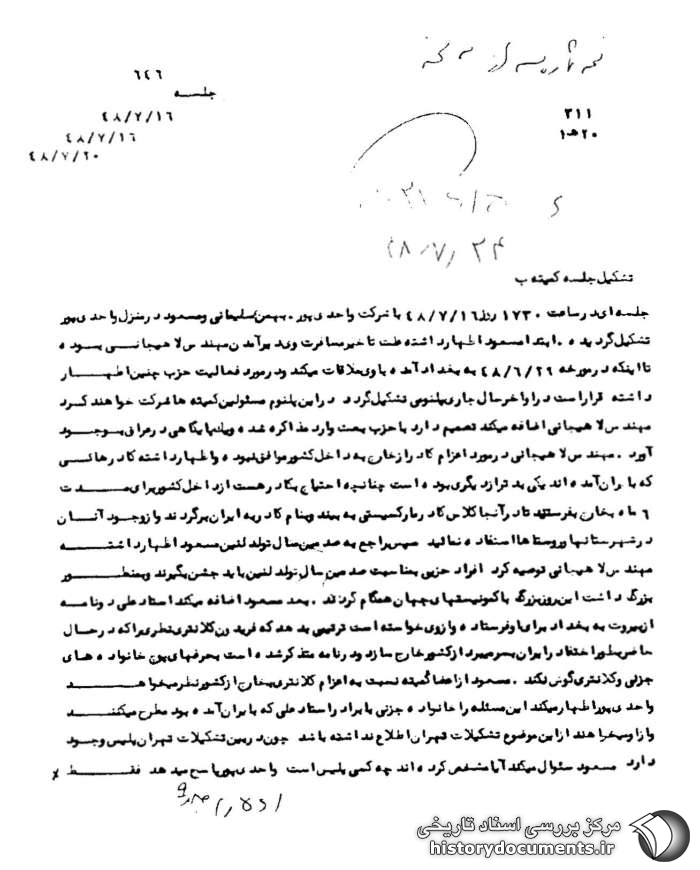 ۶۴۶
جلسه
۳۱۱
۲۰هـ۱
۴۸/۷/۱۶
۴۸/۷/۱۶
۴۸/۷/۲۰
۴۸/۷/۲۴
تشکیل جلسه کمیته ب
جلسه ای در ساعت ۱۷۳۰ روز ۴۸/۷/۱۶ با شرکت واحدی پور . بهمن سلیمانی و مسعود در منزل واحدی پور
تشکیل گردیده . ابتدا مسعود اظهار داشته علت تاخیر مسافرت وی دیر آمدن مهندس لاهیجانی بوده
تا اینکه در مورخه ۴۸/۶/۲۹ به بغداد آمده با وی ملاقات میکند و در مورد فعالیت حزب چنین اظهار
داشته قرار است در اواخر سال جاری پلنومی تشکیل گردد در این پلنوم مسئولین کمیته ها شرکت خواهند کرد
مهندس لاهیجانی اضافه میکند تصمیم دارد با حزب بعث وارد مذاکره شده و پایگاهی در عراق بوجود
آورد . مهندس لاهیجانی در مورد اعزام کادر از خارج به داخل کشور موافق نبوده و اظهار داشته کادرهائی
که با ایران آمده اند یکی بدتر از دیگری بوده است چنانچه احتیاج بکادر هست از داخل کشور برای مدت
۶ ماه بخارج بفرستند تا در آنجا کلاس کادر مارکسیستی به بیند و بنام کادر به ایران برگردند و از وجود آنان
در شهرستانها و روستاها استفاده نمائید سپس راجع به صدمین سال تولد لنین مسعود اظهار داشته
مهندس لاهیجانی توصیه کرد افراد حزبی بمناسبت صدمین سال تولد لنین باید جشن بگیرند و بمنظور
بزرگداشت این روز بزرگ با کمونیستهای جهان همگام گردند . بعد مسعود اضافه میکند استاد علی دو نامه
از بیروت به بغداد برای او فرستاده و از وی خواسته است ترتیبی بدهد که فریدون کلانتری نظری را که در حال
حاضر بطور اختفا در ایران بسر میبرد از کشور خارج سازد و در نامه متذکر شده است بحرفهای پوچ خانواده های
جزنی و کلانتری گوش نکند . مسعود از اعضا کمیته نسبت به اعزام کلانتری بخارج از کشور نظر میخواهد
واحدی پور اظهار میکند این مسئله را خانواده جزنی با برادر استاد علی که با ایران آمده بود مطرح میکنند
و از او میخواهند از این موضوع تشکیلات تهران اطلاع نداشته باشد چون در بین تشکیلات تهران پلیس وجود
دارد مسعود سئوال میکند آیا مشخص کرده اند چه کسی پلیس است واحدی پور پاسخ میدهد فقط
مرکز بررسی اسناد تاریخی
historydocuments.ir